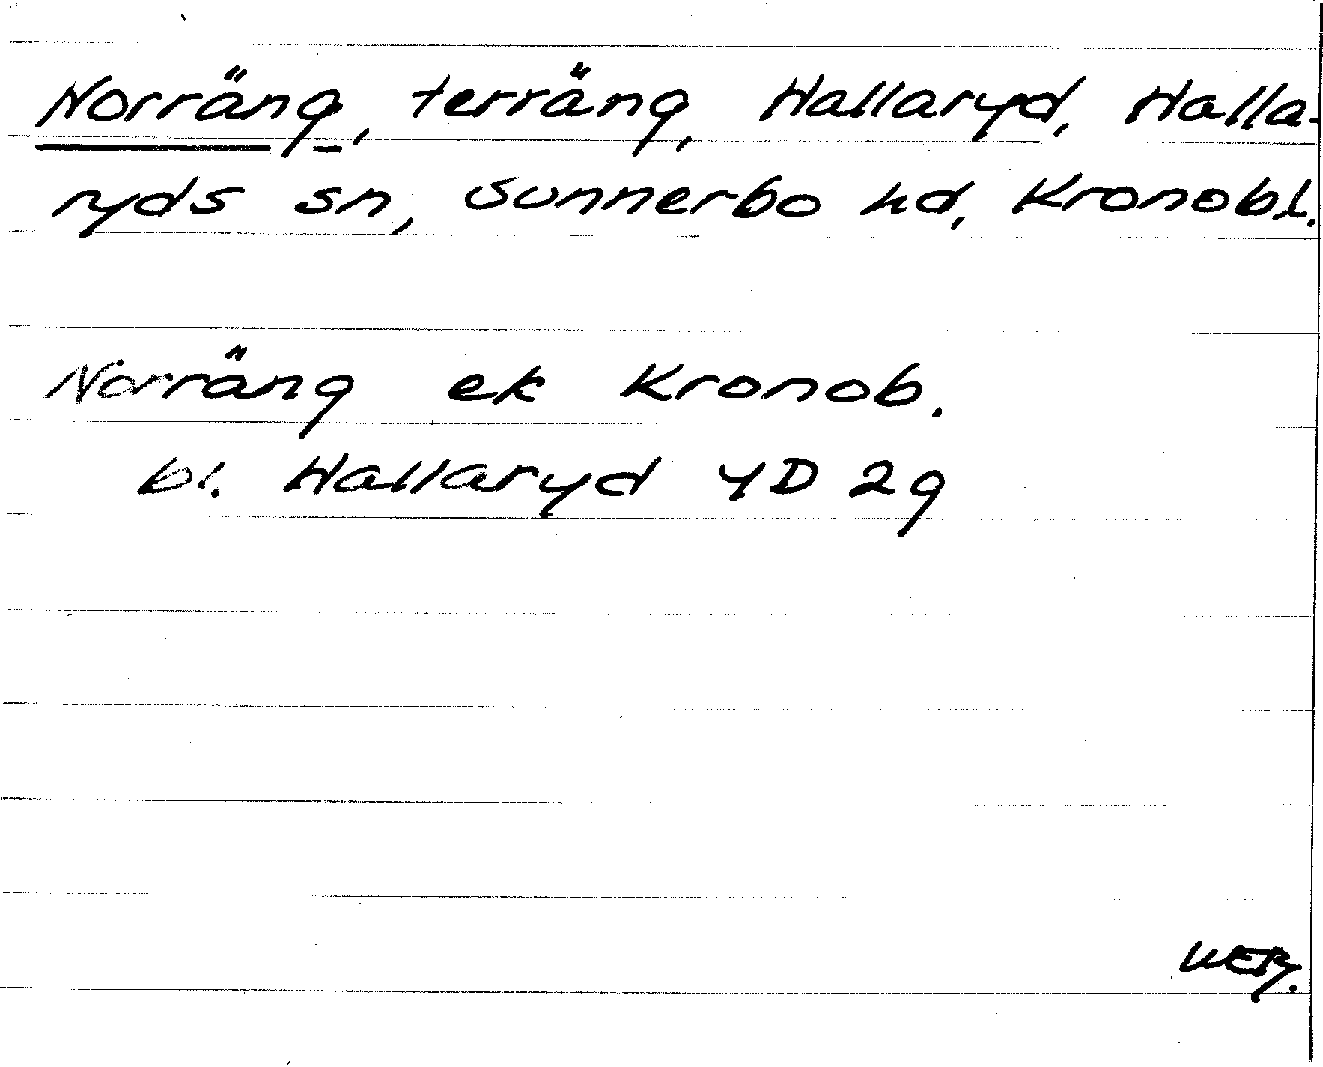 Norräng, terräng, Hallaryd, Halla-
ryds sn, Sunnerbo hd, Kronobl.
Norräng ek Kronob.
bl. Hallaryd 4D 2g